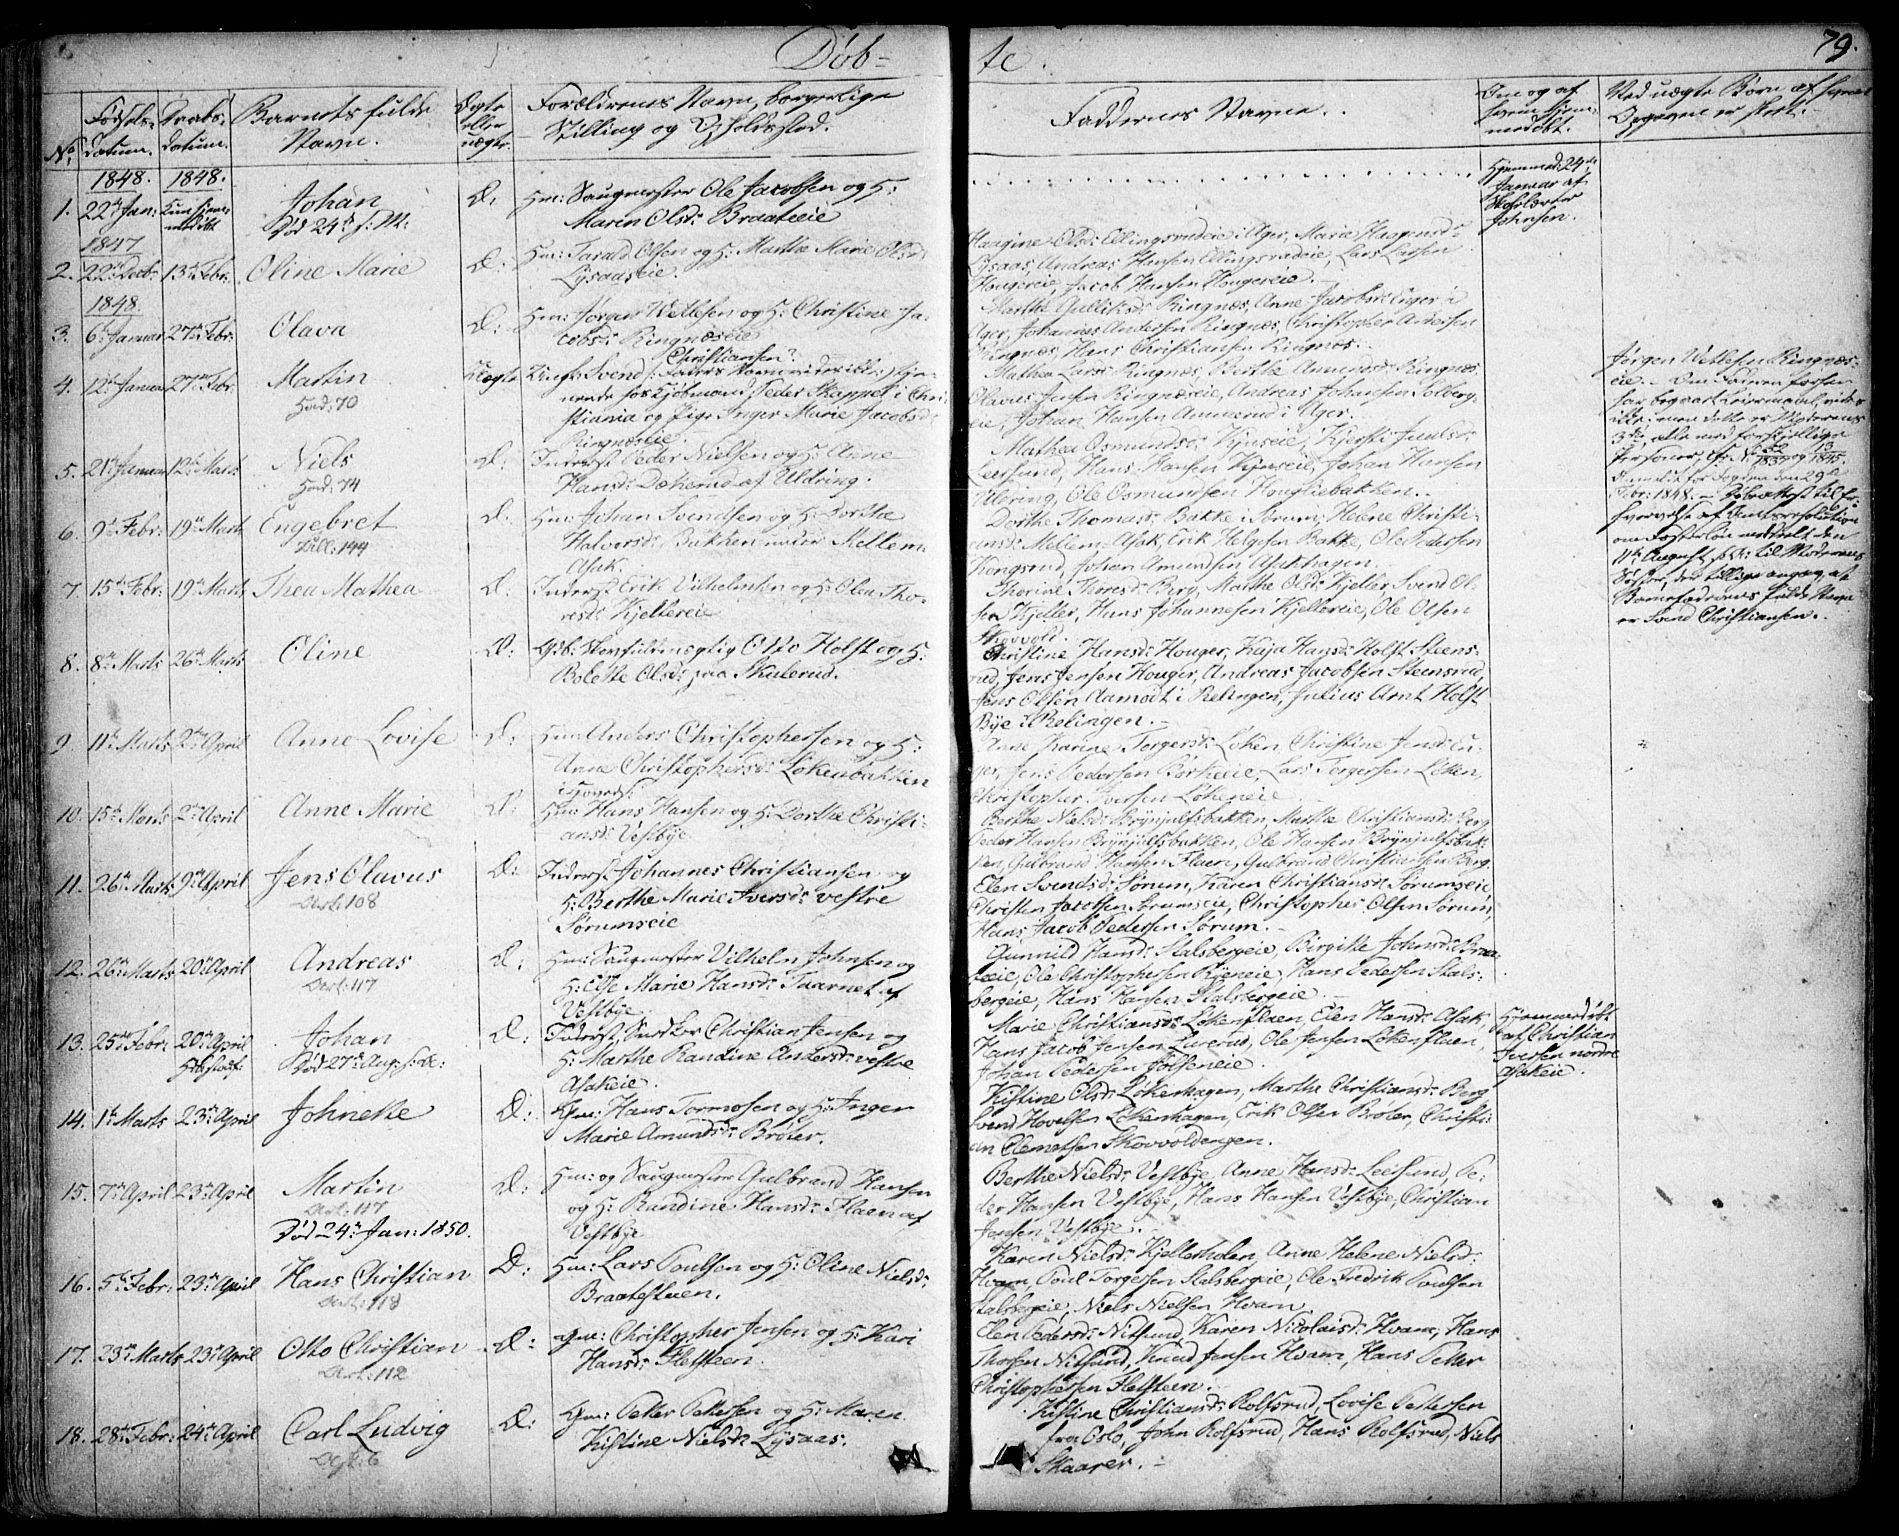 Døb=
te.
79.
No.
Fødsels-
datum.
Daabs-
datum.
Barnets fulde
Navn.
Ægte
eller
uægte
Forældrenes Navn, borgerlige
Stilling og Opholdssted.
Faddernes Navne.
Om og af
hvem hjem-
medøbt.
Ved uægte Børn af hvem
Opgaven er skeet.
1848. 1848.
1. 22de Jan: Kun hjem-
medøbt
Johan
Død 24d s: M:
Æ.
Hm: Saugmester Ole Jacobsen og H:
Maren Olsd: Braateeie
Hjemmed: 24de
Januar af
Skolelærer
Johnsen.
1847.
2. 22de Decbr 13de Febr: Oline Marie Æ:
Hm: Tarald Olsen og H: Marthe Marie Olsd:
Lysaaseie.
Haagine Olsd: Ellingsrudeie i Ager, Marie Haagensd:
Lysaas, Andreas Hansen Ellingsrudeie, Lars Larsen
Hougereie, Jacob Hansen Hougereie.
1848.
3. 6te Januar 27de Febr: Olava Æ:
Hm: Jørgen Vetlesen og H: Christine Ja-
cobsd: Ringnæseie
Marthe Gulliksd: Ringnæs, Anne Jacobsd: Eiger i
Ager, Johannes Andersen Ringnæs, Christopher Andersen
Ringnæs, Hans Christiansen Ringnæs.
4. 12te Januar 27de Febr: Martin
Hovd: 70
Uægte
Christiansen?
Ungk: Svend (: Faders Navn vides ikke:) tje-
nende hos Kjøbmand Peder Kappel i Chri-
stiania og Pige Inger Marie Jacobsd:
Ringnæseie.
Mathea Larsd: Ringnæs, Berthe Amundsd: Ringnæs
Olavus Jensen Ringnæseie, Andreas Johansen Solberg-
eie, Johan Hansen Ammerud i Ager.
Jørgen Vetlesen Ringnæs-
eie. – Om Faderen forhen
har begaaet Leiermaal, vides
ikke; men dette er Moderens
3die, alle med forskjellige
Personer,
Anmeldt for Fogden den 29de
Febr: 1848. – Døbeattest til Er-
hvervelse af Amtsresolution
om Fosterløn meddeelt den
11te August til Moderens
Søster, der tillige angav, at
Barnefaderens fulde Navn
er Svend Christiansen.
5. 21de Januar 12te Marts Niels
Hovd: 74
Æ:
Inderst Peder Nielsen og H: Anne
Hansd: Dækerud af Uldring.
Mathea Osmundsd: Kynseie, Kjersti Juulsd:
Leersund, Hans Hansen Kynseie, Johan Hansen
Uldring, Ole Osmundsen Hougliebakken.
6. 9de Febr: 19de Marts Engebret
Lill: 144
Æ:
Hm: Johan Svendsen og H: Dorthe
Halvorsd: Bakken under Mellem-
Asak.
Dorthe Thomasd: Bakke i Sørum, Helene Christi-
ansd: Mellem-Asak, Erik Helgesen Bakke, Ole Pedersen
Kongsrud, Johan Amundsen Asakhagen.
7. 15de Febr: 19de Marts Thea Mathea Æ:
Inderst Erik Vilhelmsen og H: Olea Tho-
resd: Kjellereie
Thorine Thoresd: Berg, Marthe Olsd: Kjeller, Svend Ol-
sen Kjeller, Hans Johannesen Kjellereie, Ole Olsen
Skovvold.
8. 8de Marts 26de Marts Oline Æ:
Gb: Skomfuldmægtig Otto Holst og H:
Bolette Olsd: paa Skulerud.
Christine Hansd: Houger, Kaja Hansd: Holst Steens-
rud, Jens Jensen Houger, Andreas Jacobsen Steensrud,
Jens Olsen Aamodt i Rælingen, Julius Arnt Holst
Bye i Rælingen.
9. 11te Marts 2den April Anne Lovise Æ:
Hm: Anders Christophersen og H:
Anne Christophersd: Løkenbakken
Anne Karine Torgersd: Løken, Christine Jensd: Eu-
ger, Jens Pedersen Børkeeie, Lars Torgersen Løken,
Christopher Iversen Løkeneie
10. 15de Marts 2den April Anne Marie Æ:
Hm: Hans Hansen og H: Dorthe Christi-
ansd: Vestbye
Berthe Nielsd: Brynjulfsbakken, Marthe Christiansd: Berg
Peder Hansen Brynjulfsbakken, Ole Hansen Brynjulfsbak-
ken, Gulbrand Hansen Flaen, Gulbrand Christiansen Berg
11. 26de Marts 9de April Jens Olavus
Dert: 108
Æ:
Inderst Johannes Christiansen og
H: Berthe Marie Iversd: vestre
Sørumseie
Elen Svendsd: Sørum, Karen Christiansd: Sørumseie
Christen Jacobsen Sørumseie, Christopher Olsen Sørum,
Hans Jacob Pedersen Sørum.
12. 26de Marts 20de April Andreas
Dert: 117
Æ:
Hm: Saugmester Vilhelm Johnsen og
H: Else Marie Hansd: Taarnet af
Vestbye
Gunnild Hansd: Stalsbergeie, Birgitte Johnsd: Braa-
teeie, Ole Christophersen Ryeneie, Hans Pedersen Stals-
bergeie, Hans Hansen Stalsbergeie
13. 25de Febr: 20de April
Johan
Død 27de Aug: s: A:
Æ:
Inderst, Snedker Christian Jensen og
H: Marthe Randine Andersd: vestre
Asakeie.
Marie Christiansd: Løkenflaen, Elen Hansd: Asak,
Hans Jacob Jensen Lurerud, Ole Jensen Løkenflaen,
Johan Pedersen Jølseneie.
Hjemmedøbt
af Christian
Iversen nordre
Asakeie.
14. 1ste Marts 23de April Johnette Æ:
Gm: Hans Tormosen og H: Inger
Marie Amundsd: Brøter.
Kistine Olsd: Løkenhagen, Marthe Christiansd: Berg
Svend Hovelsen Løkenhagen, Erik Olsen Brøter, Christi-
an Clemetsen Skovvoldengen.
15. 7de April 23de April Martin
Dert: 117
Død 24de Jan: 1850.
Æ:
Hm: og Saugmester Gulbrand Hansen
og H: Randine Hansd: Flaen af
Vestbye
Berthe Nielsd: Vestbye, Anne Hansd: Leesund, Pe-
der Hansen Vestbye, Hans Hansen Vestbye, Christian
Jensen Vestbye.
16. 5te Febr: 23de April Hans Christian
Dert: 118
Æ:
Hm: Lars Poulsen og H: Oline Nielsd:
Braatestuen.
Karen Nielsd: Kjellerholen, Anne Helene Nielsd:
Hvam, Poul Torgersen Stalsbergeie, Ole Fredrik Poulsen
Stalsbergeie, Niels Nielsen Hvam.
17. 23de Marts 23de April Otto Christian
Dert: 112
Æ:
Gm: Christopher Jensen og H: Kari
Hansd: Fletsteen.
Elen Pedersd: Nitsund, Karen Nicolaisd: Hvam, Hans
Thorsen Nitsund, Knud Jensen Hvam, Hans Petter
Christophersen Fletsteen.
18. 28de Febr: 24de April Carl Ludvig
Æ:
Gm: Petter Pettersen og H: Maren
Kistine Nielsd: Lysaas.
Kistine Christiansd: Rolfsrud, Lovise Pettersen
fra Oslo, John Rolfsrud, Hans Rolfsrud, Niels
Skaarer.